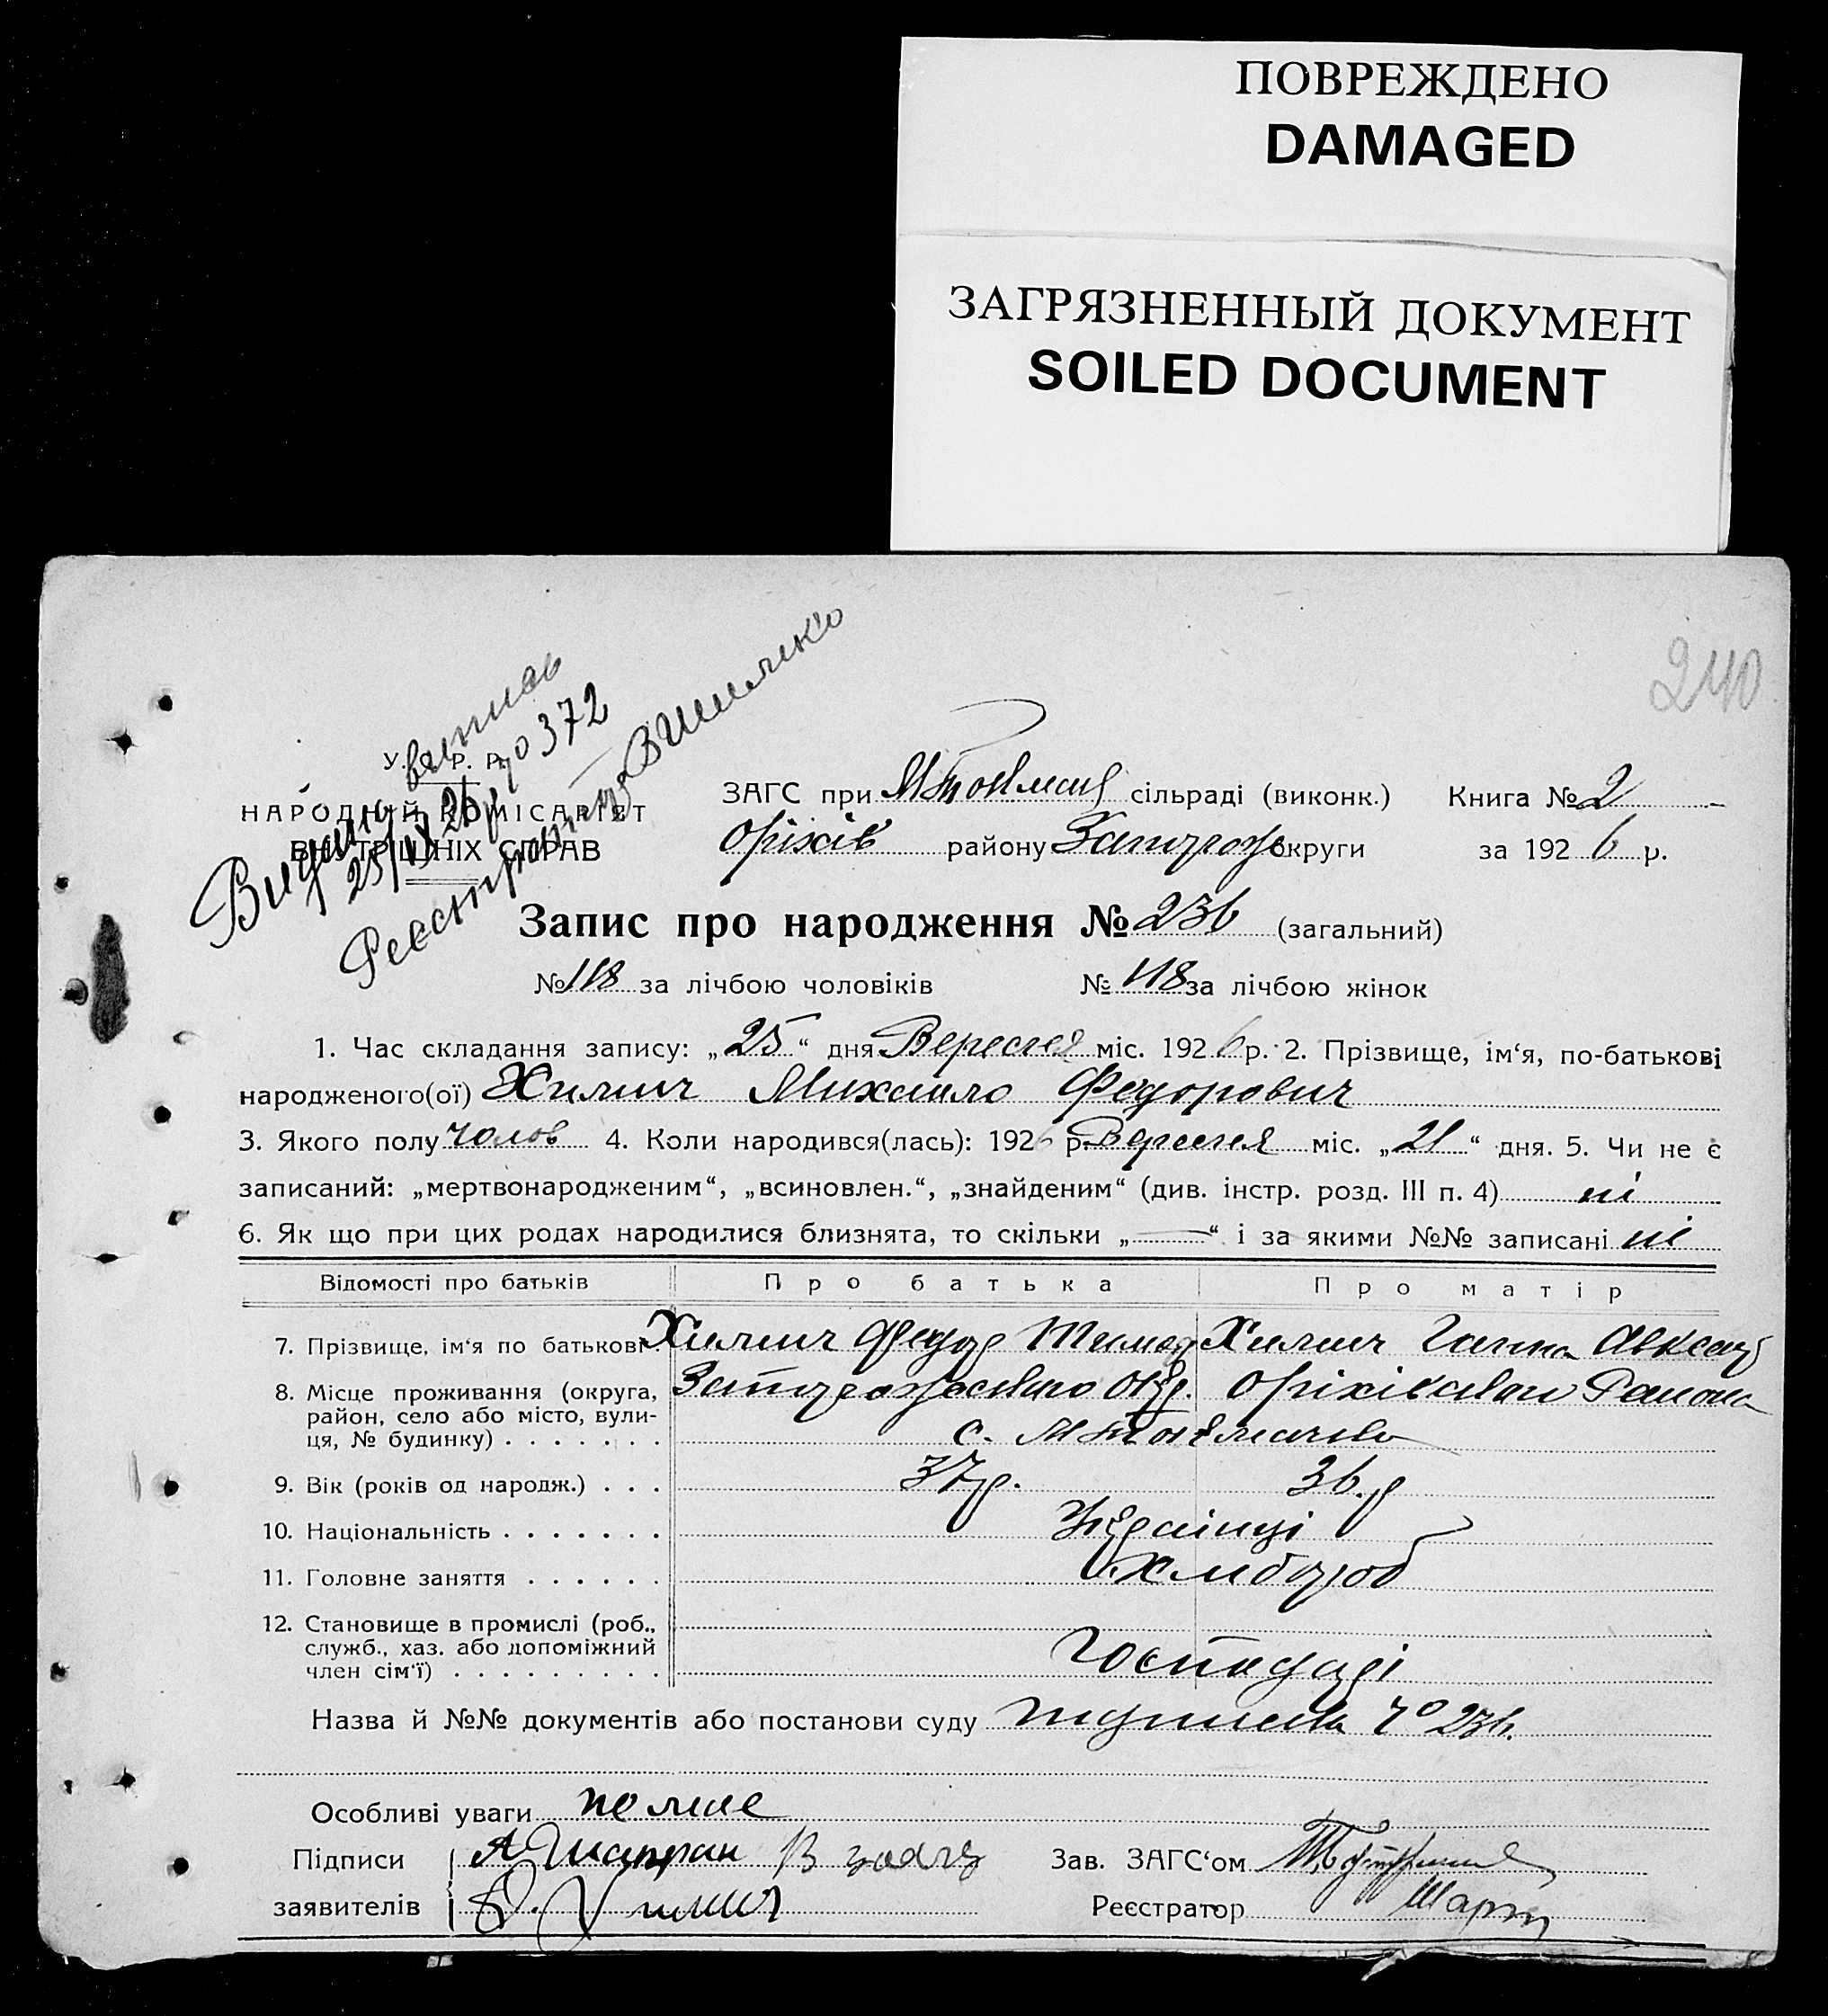 ПОВРЕЖДЕНО
DAMAGED
ЗАГРЯЗНЕННЫЙ ДОКУМЕНТ
SOILED DOCUMENT
240
Видано випись
25/IX 26 р. № 372
Реєстратор
У. С. Р. Р.
НАРОДНІЙ КОМІСАРІЯТ
ВНУТРІШНІХ СПРАВ
ЗАГС при М Токмац сільраді (виконк.) Книга № 2
Оріхів району Запорож округи за 1926 р.
Запис про народження № 236 (загальний)
№ 118 за лічбою чоловіків № 118 за лічбою жінок
1. Час складання запису: „25“ дня Вересня міс. 1926 р. 2. Прізвище, ім‘я, по-батькові
народженого(ої) Хилич Михайло Федорович
3. Якого полу чолов 4. Коли народився(лась): 1926 р. Вересня міс. „21“ дня. 5. Чи не є
записаний: „мертвонародженим“, „всиновлен.“, „знайденим“ (див. інстр. розд. III п. 4) ні
6. Як що при цих родах народилися близнята, то скільки „—“ і за якими №№ записані ні
Відомості про батьків Про батька Про матір
7. Прізвище, ім‘я по батькові Хилич Федор Тимоф Хилич Ганна Авксен
8. Місце проживання (округа, Запорожського Окр. Оріхівського Района
район, село або місто, вули-
ця, № будинку) . . . . . . . с. М Токмачка
9. Вік (років од народж.) . . . 37 р. 36 р
10. Національність . . . . . . . Українці
11. Головне заняття . . . . . . Хлибороб
12. Становище в промислі (роб.,
служб., хаз. або допоміжний
член сім‘ї) . . . . . . . . . Господарі
Назва й №№ документів або постанови суду підписка № 236.
Особливі уваги немає
Підписи А Шапран Зав. ЗАГС‘ом
заявителів Ф. Хилич Реєстратор